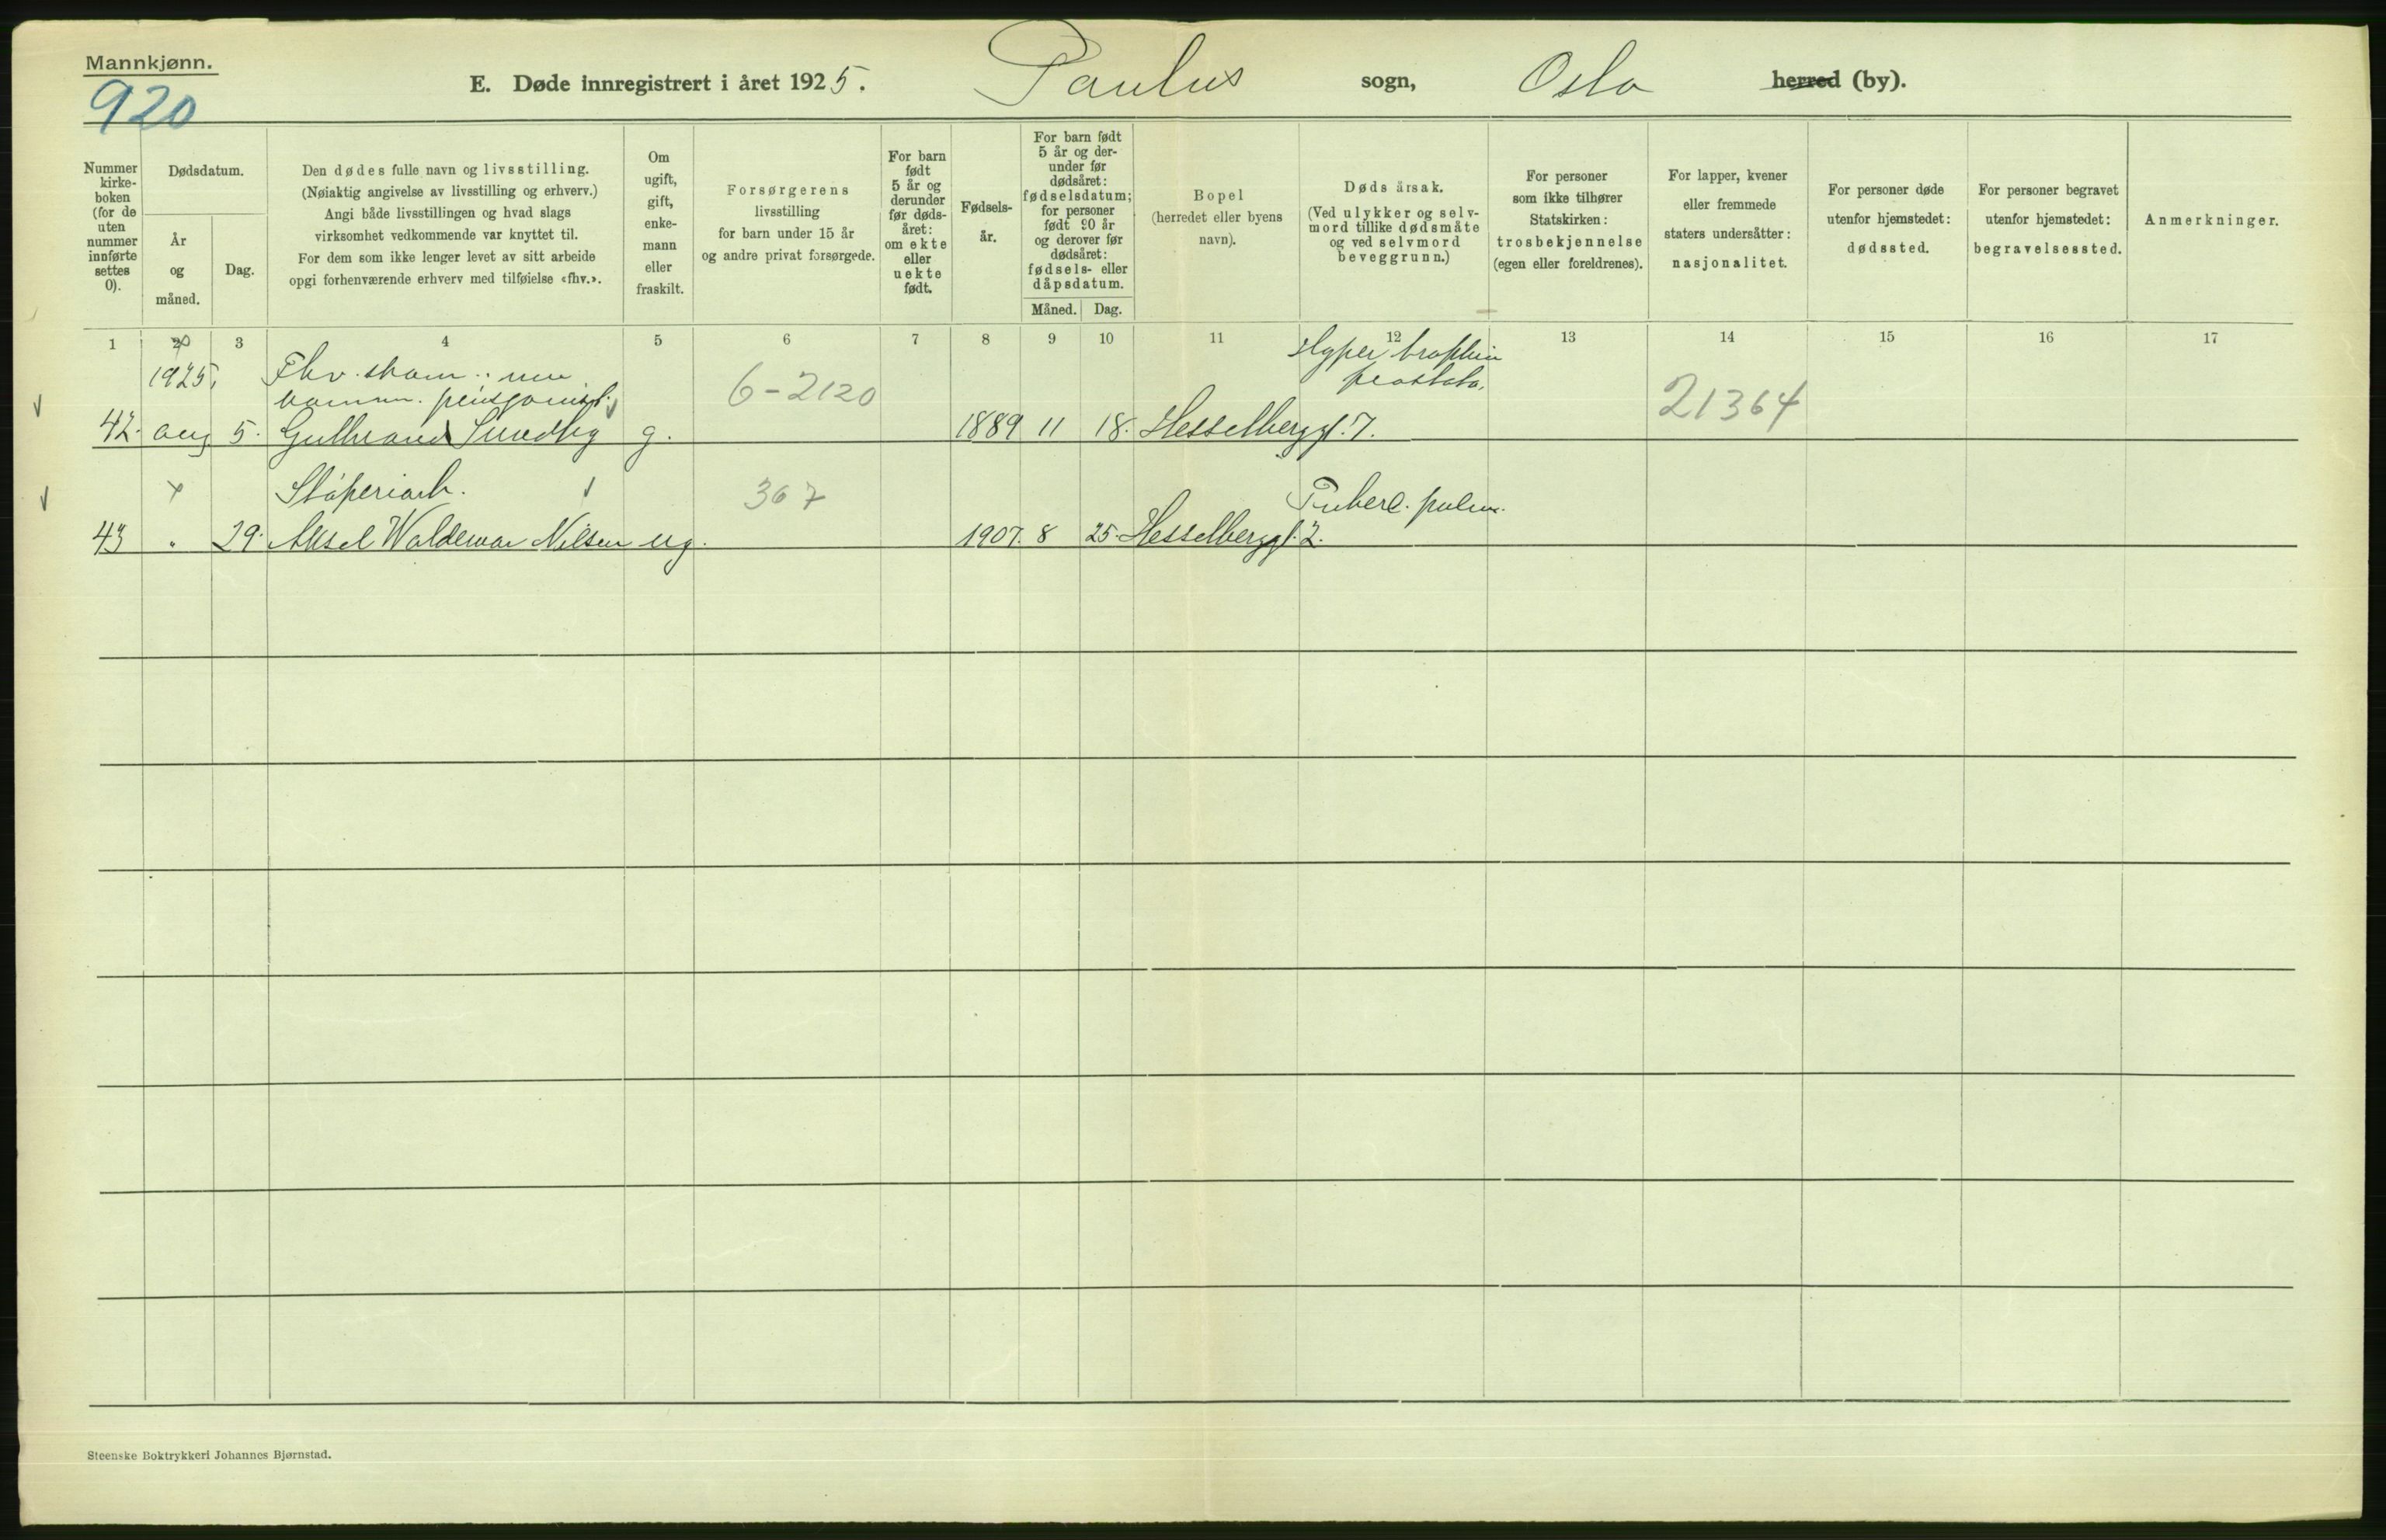 Mannkjønn.
920
E. Døde innregistrert i året 1925. Paulus sogn, Oslo herred (by).
Nummer
kirke-
boken
(for de
uten
nummer
innførte
settes
0).
Dødsdatum.
År
og
måned.
Dag.
Den dødes fulle navn og livsstilling.
(Nøiaktig angivelse av livsstilling og erhverv.)
Angi både livsstillingen og hvad slags
virksomhet vedkommende var knyttet til.
For dem som ikke lenger levet av sitt arbeide
opgi forhenværende erhverv med tilføielse «fhv.».
Om
ugift,
gift,
enke-
mann
eller
fraskilt.
Forsørgerens
livsstilling
for barn under 15 år
og andre privat forsørgede.
For barn
født
5 år og
derunder
før døds-
året:
om ekte
eller
uekte
født.
Fødsels-
år.
For barn født
5 år og der-
under før
dødsåret:
fødselsdatum;
for personer
født 90 år
og derover før
dødsåret:
fødsels- eller
dåpsdatum.
Måned. Dag.
Bopel
(herredet eller byens
navn).
Dødsårsak.
(Ved ulykker og selv-
mord tillike dødsmåte
og ved selvmord
beveggrunn.)
For personer
som ikke tilhører
Statskirken:
trosbekjennelse
(egen eller foreldrenes).
For lapper, kvener
eller fremmede
staters undersåtter:
nasjonalitet.
For personer døde
utenfor hjemstedet:
dødssted.
For personer begravet
utenfor hjemstedet:
begravelsessted.
Anmerkninger.
1 3 4 5 6 7 8 9 10 11 12 13 14 15 16 17
1925. Fhv. Hypertrophia
komm. pensjonist. 6-2120 prostata. 21364
42. aug 5. Gulbrand Sundby g. 1889 11 18. Hesselberggt. 7.
Støperiarb. 367 Tuberc. pulm.
43 " 29. Aksel Waldemar Nilsen ug. 1907. 8 25. Hesselberggt. 2.
Steenske Boktrykkeri Johannes Bjørnstad.